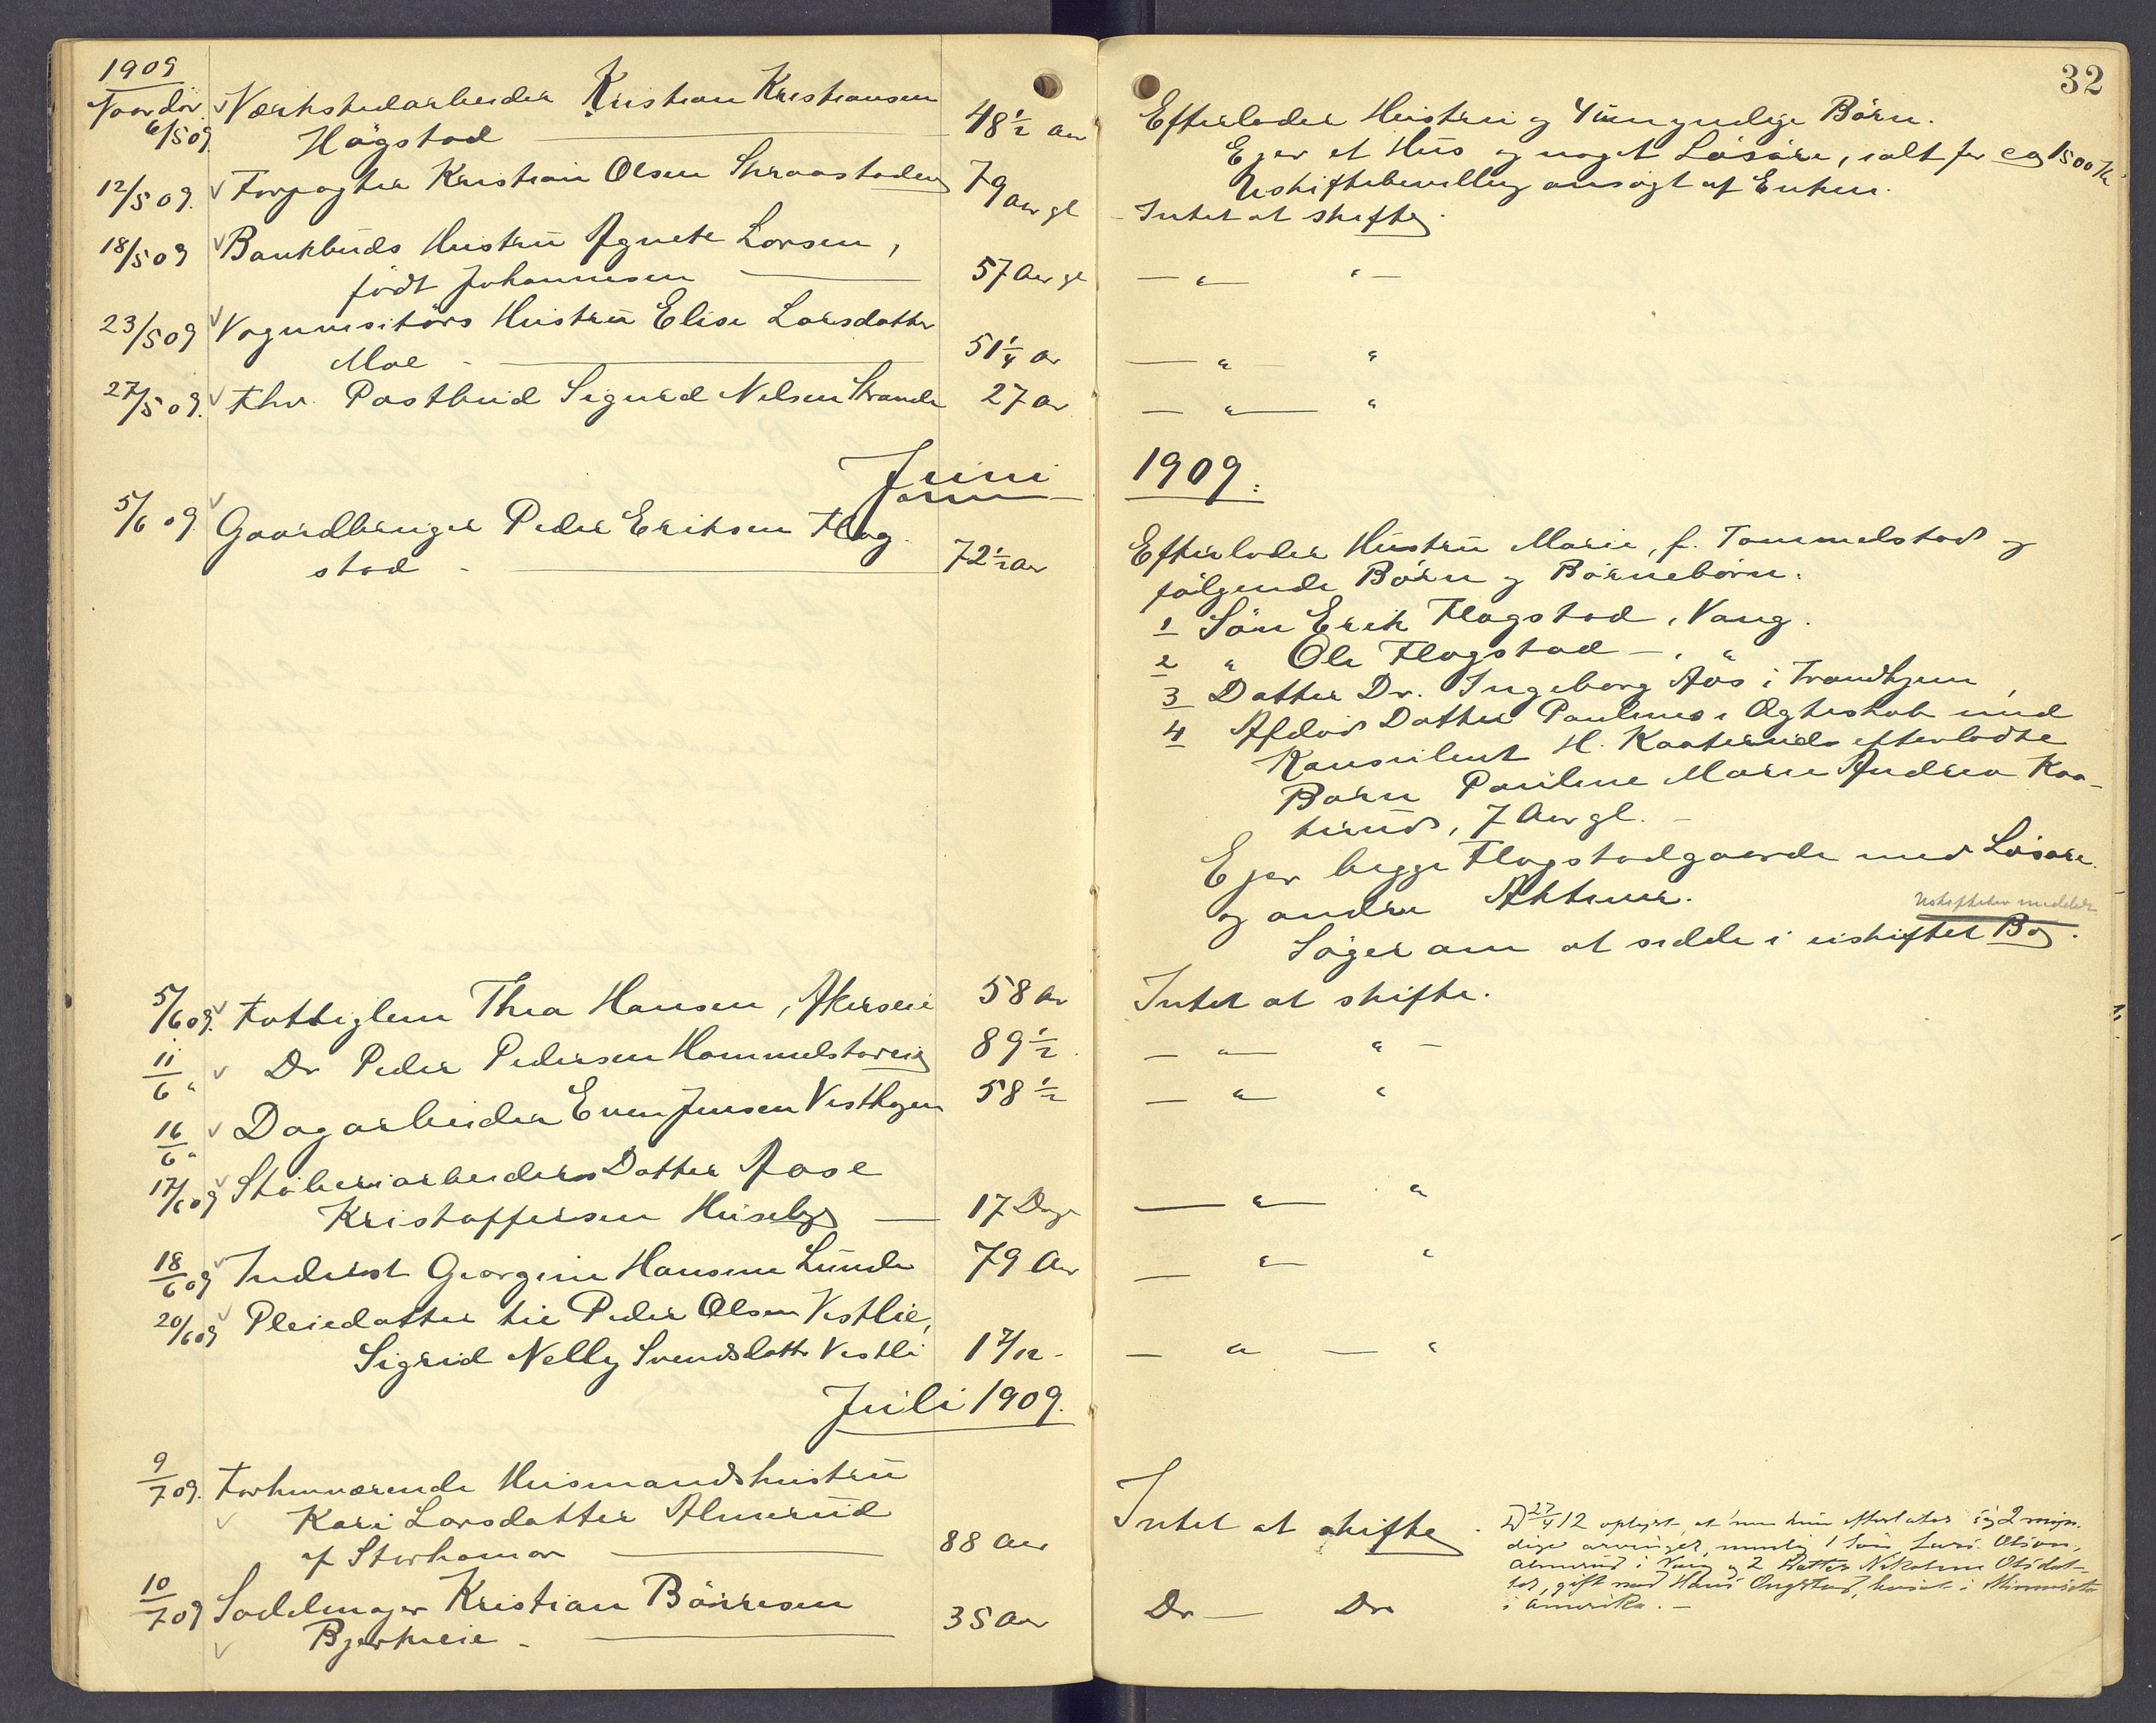 32
1909
6/5 09 Værkstedarbeider Kristian Kristiansen
Hågstad 48 1/2 Aar
Efterlader Hustru og 4 umyndige Børn.
Ejer et Hus og noget Løsøre, ialt for ca 1500 Kr
Uskiftebevilling ansøgt af Enken.
12/5 09. Forpagter Kristian Olsen 79 Aar gl
Intet at skifte.
18/5 09 Bankbuds Hustru Agnete Larsen,
født Johannesen 57 Aar gl
— " " —
23/5 09 Vognvisitørs Hustru Elise Larsdatter
Moe 51 1/4 Ar
— " "
27/5 09. Fhv. Postbud Sigurd Nilsen Strande 27 Ar
— " "
Juni 1909.
5/6 09 Gaardbruger Peder Eriksen Flag-
stad 72 1/2 Aar
Efterlader Hustru Marie, f. Tommelstad og
følgende Børn og Børnebørn:
1 Søn Erik Flagstad, Vang.
2 " Ole Flagstad — "
3 Datter Dr. Ingeborg Aas i Trondhjem,
4 Afdød Datter Paulines i Ægteskab med
Konsulent H. Kaateruds efterladte
Barn Pauline Marie Andrea Kaa-
terud, 7 Aar gl.
Ejer begge Flagstadgaarde med Løsøre
og andre Aktiver.
Uskiftebev meddelt
Søger om at sidde i uskiftet Bo.
5/6 09. Fattiglem Thea Hansen, Akerseie 58 Ar
Intet at skifte.
11/6 " Do Peder Pedersen Hommelstadeie 89 1/2
— " " —
16/6 " Dagarbeider Even Jensen Vesthagen 58 1/2
— " "
17/6 09 Støberiarbeiders Datter Aase
Kristoffersen Huseby 17 Dage
— " "
18/6 09 Inderst Georgine Hansen Lunde 79 Aar
— " "
20/6 09 Pleiedatter til Peder Olsen Vestlie,
Sigrid Nelly Svendsdatter Vestli 1 7/12
— " — "
Juli 1909.
9/7 09. Forhenværende Husmandshustru
Kari Larsdatter Almerud
af Storhamar 88 Aar
Intet at skifte.
27/4 12 oplyst, at hun efterlater sig 2 myn-
dige arvinger, nemlig 1 Søn Lars Olsen,
Almerud i Vang og 2 Datter Nikoline Olsdat-
ter, gift med Hans Ongstad, bosat i Minnesota
i Amerika.
10/7 09 Sadelmager Kristian Børresen
Bjerkeeie 35 Aar
Do — Do